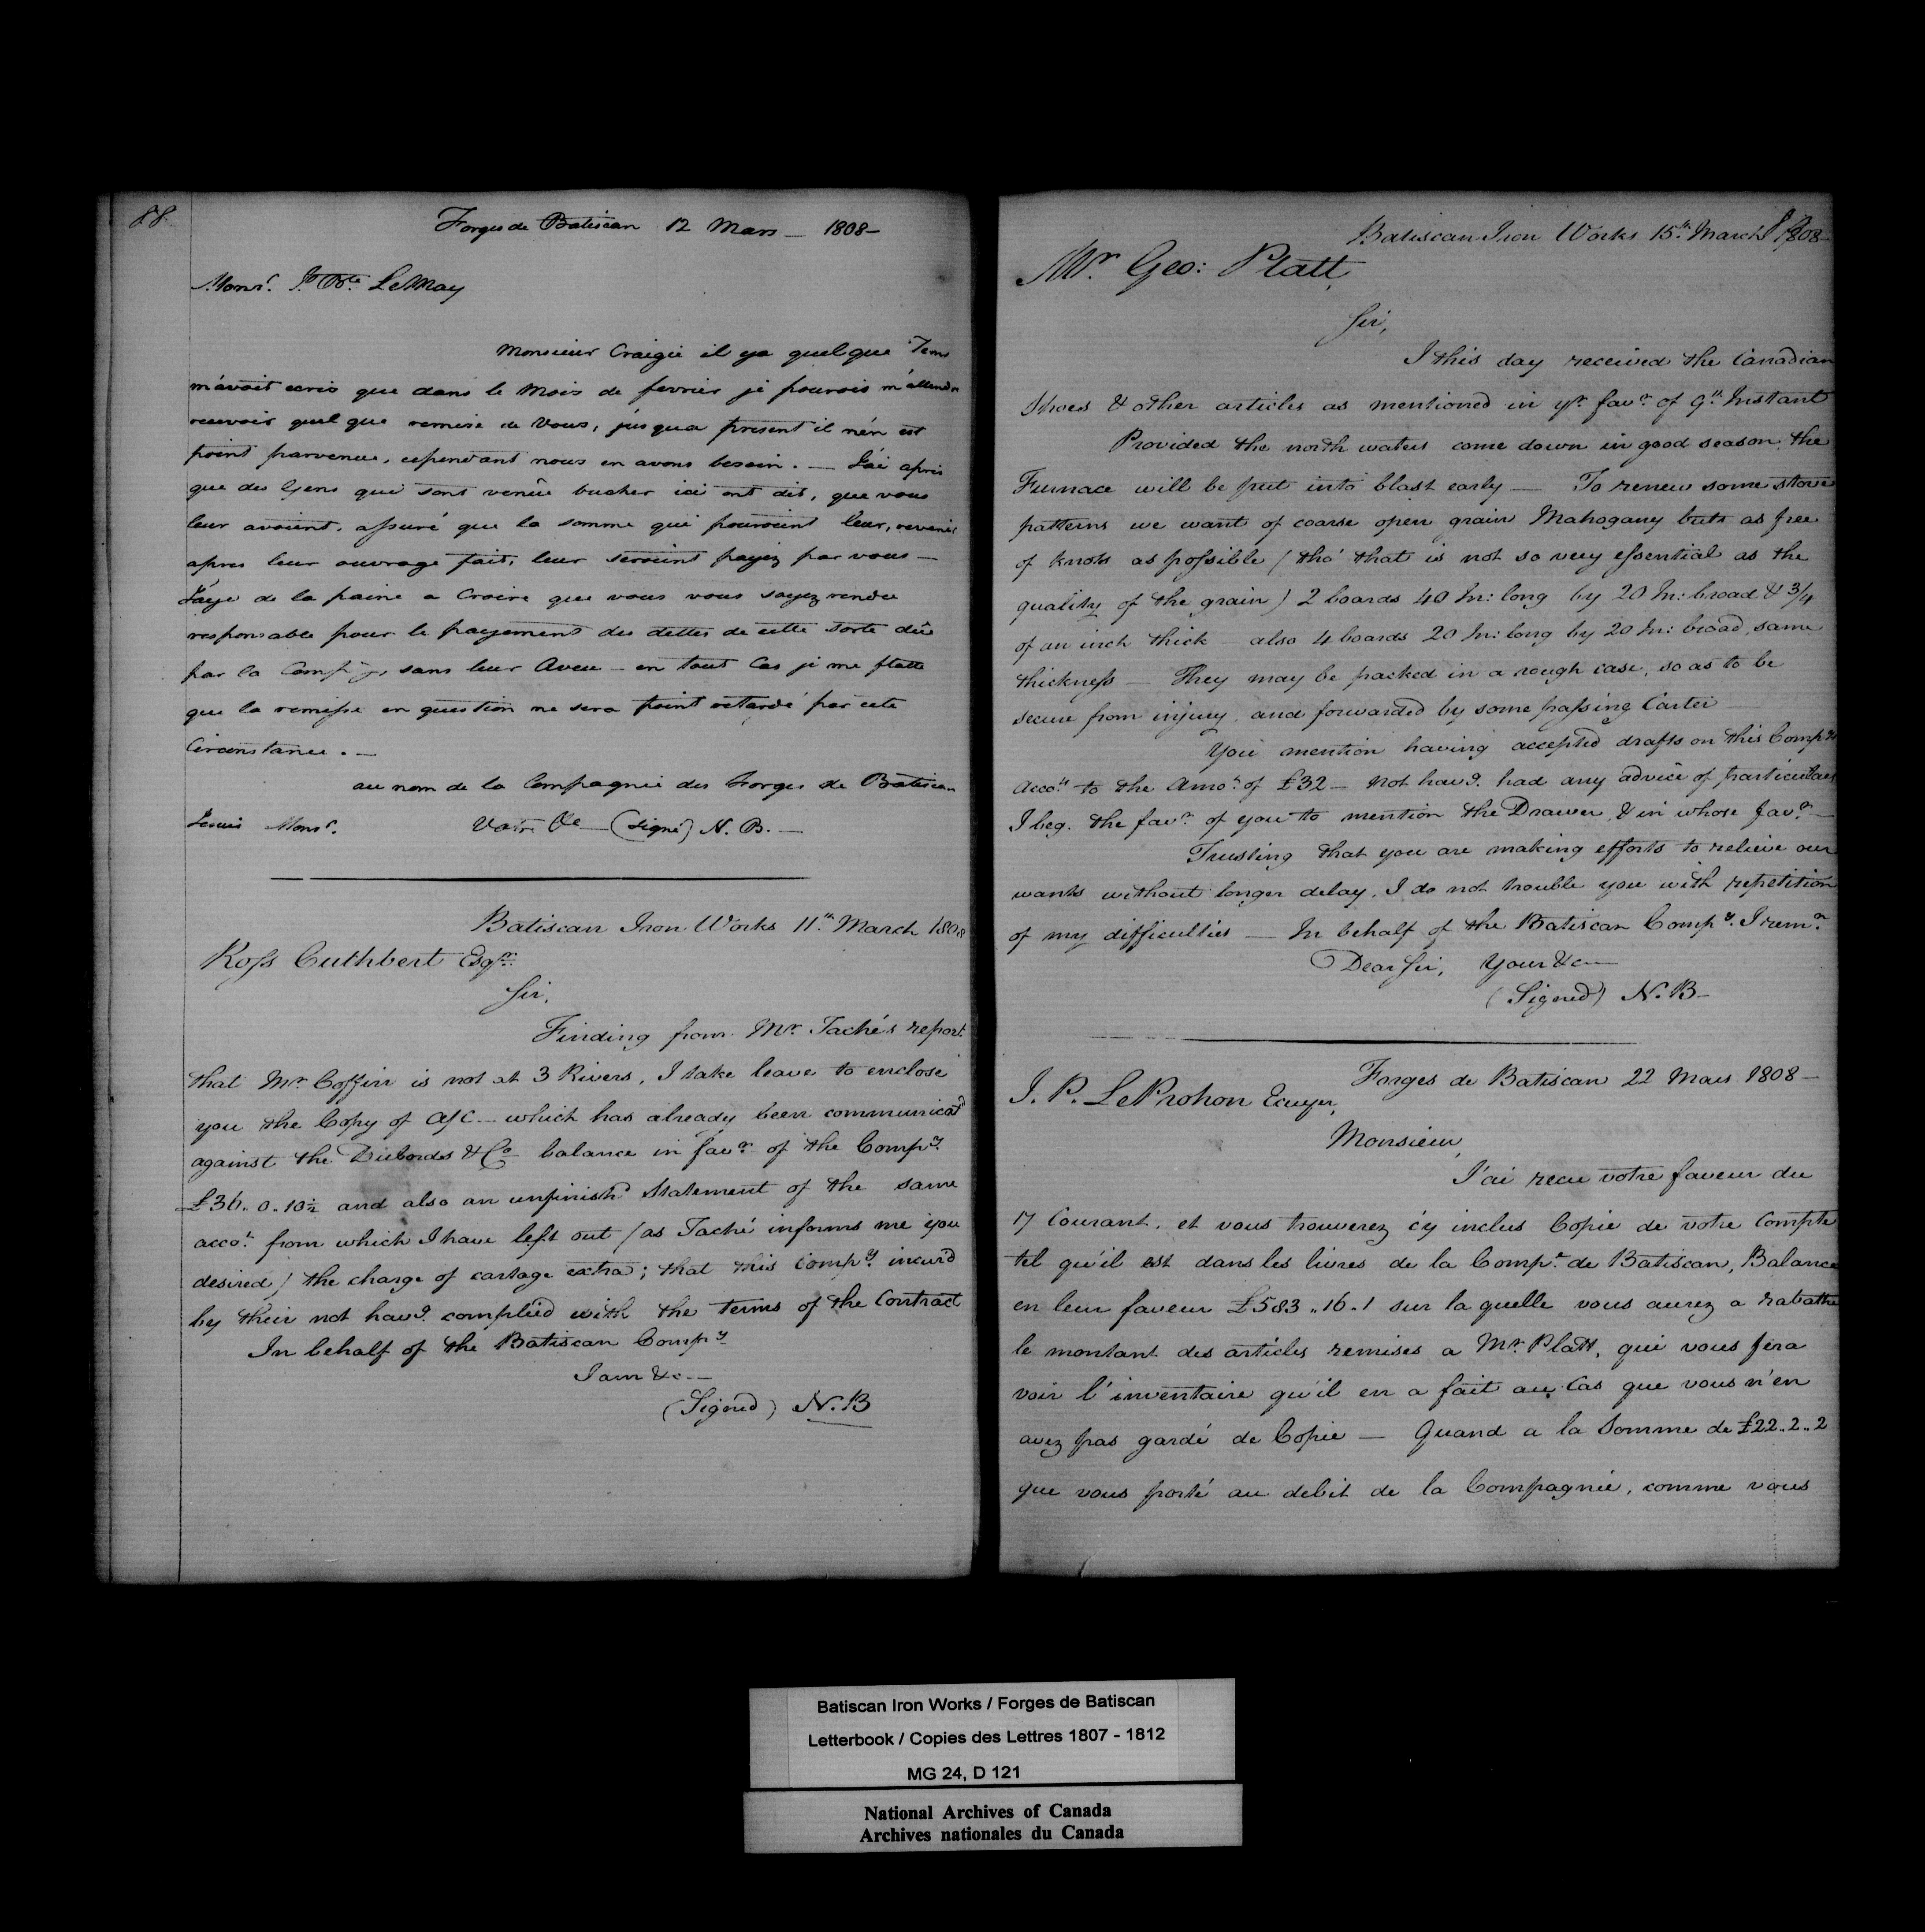 88
Forges de Batiscan 12 Mars — 1808 —
Monsr. J. Bte LeMay
Monsieur Craigie il ya quelque Tems
m'avoit ecris que dans le Mois de fevrier je pourois m'attendre
recevoir quelque remise de Vous, jusqua present il n'en est
point parvenue, cependant nous en avons besoin. — J'ai apris
que des Gens qui sont venûe bucher ici ont dit, que vous
leur avoient, assuré que la somme qui pouroient leur, revenir
apres leur ouvrage fait, leur seroient payez par vous —
J'aye de la paine a Croire que vous vous soyez rendu
responsable pour le payement des dettes de cette sorte dûe
par la Comp'y, sans leur Aveu — en tout Cas je me flatte
que la remisse en question ne sera point retardé par cete
Circonstance. —
au nom de la Compagnie des Forges de Batiscan
Jesuis Monsr. Votre &c — (signé) N. B. —
Batiscan Iron Works 11th. March 1808
Ross Cuthbert Esqr.
Sir,
Finding from Mr. Taché's report
that Mr. Coffin is not at 3 Rivers, I take leave to enclose
you the Copy of a/c — which has already been communicatd
against the Dubords & Co balance in favr. of the Compy.
£36..0..10½ and also an unfinishd Statement of the same
acco.t from which I have left out (as Taché informs me you
desired) the charge of cartage extra; that this Compy. incur'd
by their not havg. complied with the terms of the Contract
In behalf of the Batiscan Compy.
I am &c —
(Signed) N. B
Batiscan Iron Works 15th. March 1808
Mr. Geo: Platt,
Sir,
I this day received the Canadian
Shoes & other articles as mentioned in yr. favr. of 9th. Instant
Provided the north waters come down in good season the
Furnace will be put into blast early — To renew some stove
patterns we want of coarse open grain Mahogany buts as free
of knots as possible (tho' that is not so very essential as the
quality of the grain) 2 boards 40 In: long by 20 In: broad & 3/4
of an inch thick — also 4 boards 20 In: long by 20 In: broad, same
thickness — They may be packed in a rough case, so as to be
secure from injury, and forwarded by some passing Carter —
You mention having accepted drafts on this Compys
acco.t to the Amo.t of £32 — Not havg. had any advice of particulars
I beg. the favr. of you to mention the Drawer, & in whose favr. —
Trusting that you are making efforts to relieve our
wants without longer delay, I do not trouble you with repetition
of my difficulties — In behalf of the Batiscan Compy. I remn.
Dear Sir, Your &c —
(Signed) N. B —
Forges de Batiscan 22 Mars 1808 —
J. P. LeProhon Ecuyer,
Monsieur,
J'ai recu votre faveur du
17 Courant, et vous trouverez c'y inclus Copie de votre Compte
tel qu'il est dans les livres de la Compe. de Batiscan, Balance
en leur faveur £583..16..1 sur la quelle vous aurez a rabattre
le montant des articles remises a Mr. Platt, qui vous fera
voir l'inventaire qu'il en a fait au Cas que vous n'en
avez pas gardé de Copie — Quand a la Somme de £22..2..2
que vous porté au debit de la Compagnie, comme vous
Batiscan Iron Works / Forges de Batiscan
Letterbook / Copies des Lettres 1807 - 1812
MG 24, D 121
National Archives of Canada
Archives nationales du Canada